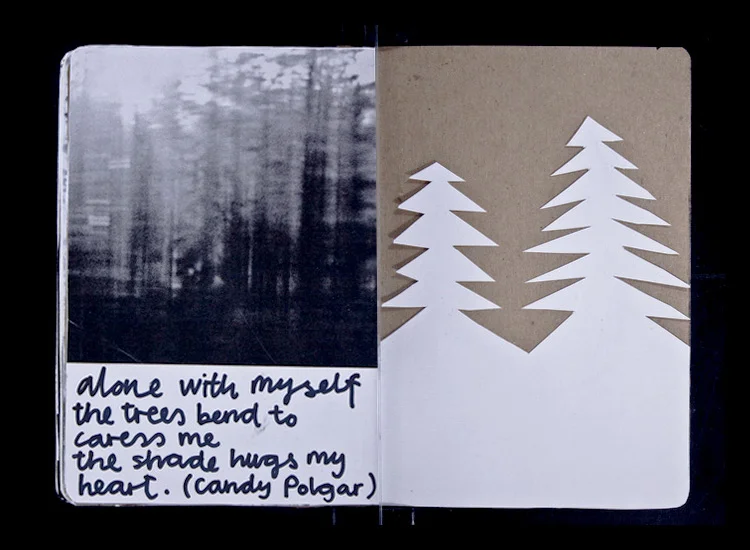 alone with myself
the trees bend to
caress me
the shade hugs my
heart. (Candy Polgar)